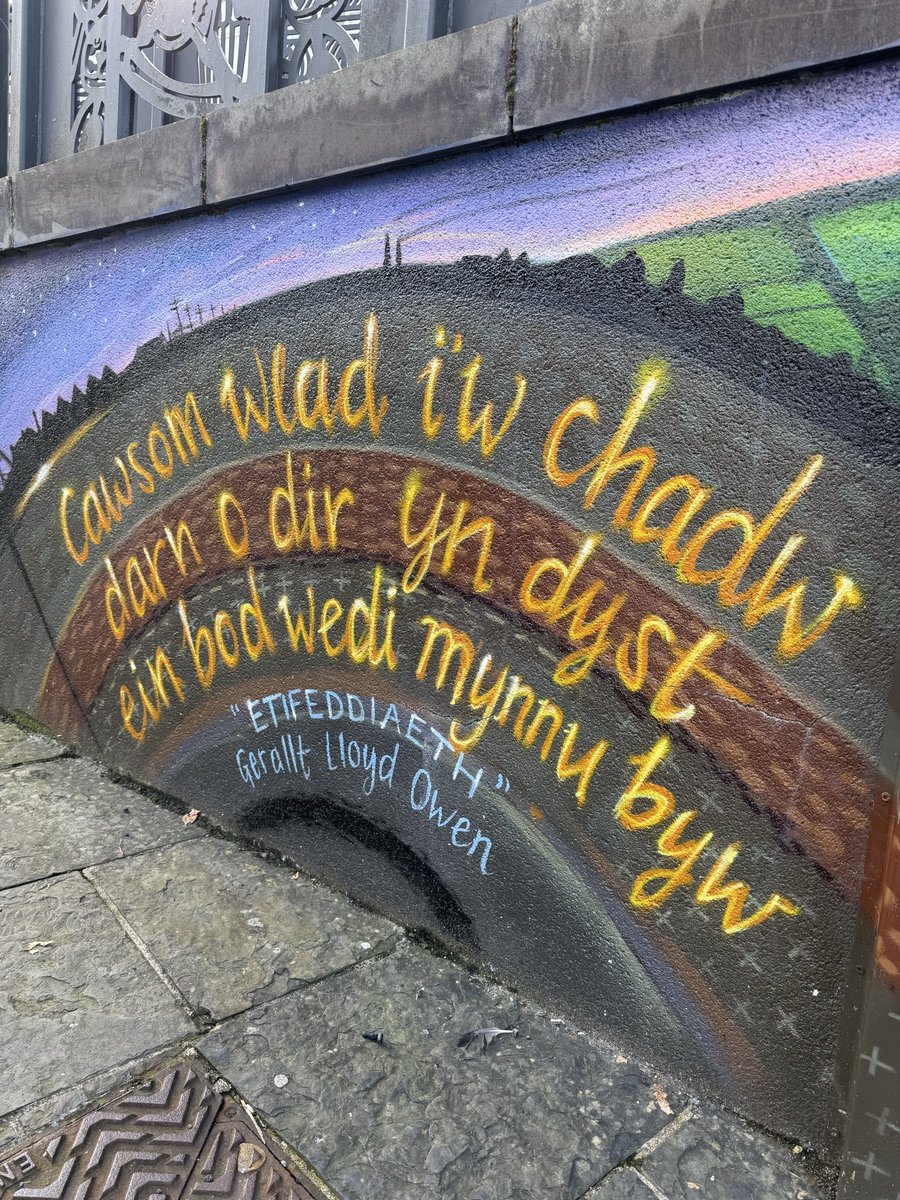 Cawsom wlad i'w chadw
darn o dir yn dyst
ein bod wedi mynnu byw
"ETIFEDDIAETH"
Gerallt Lloyd Owen